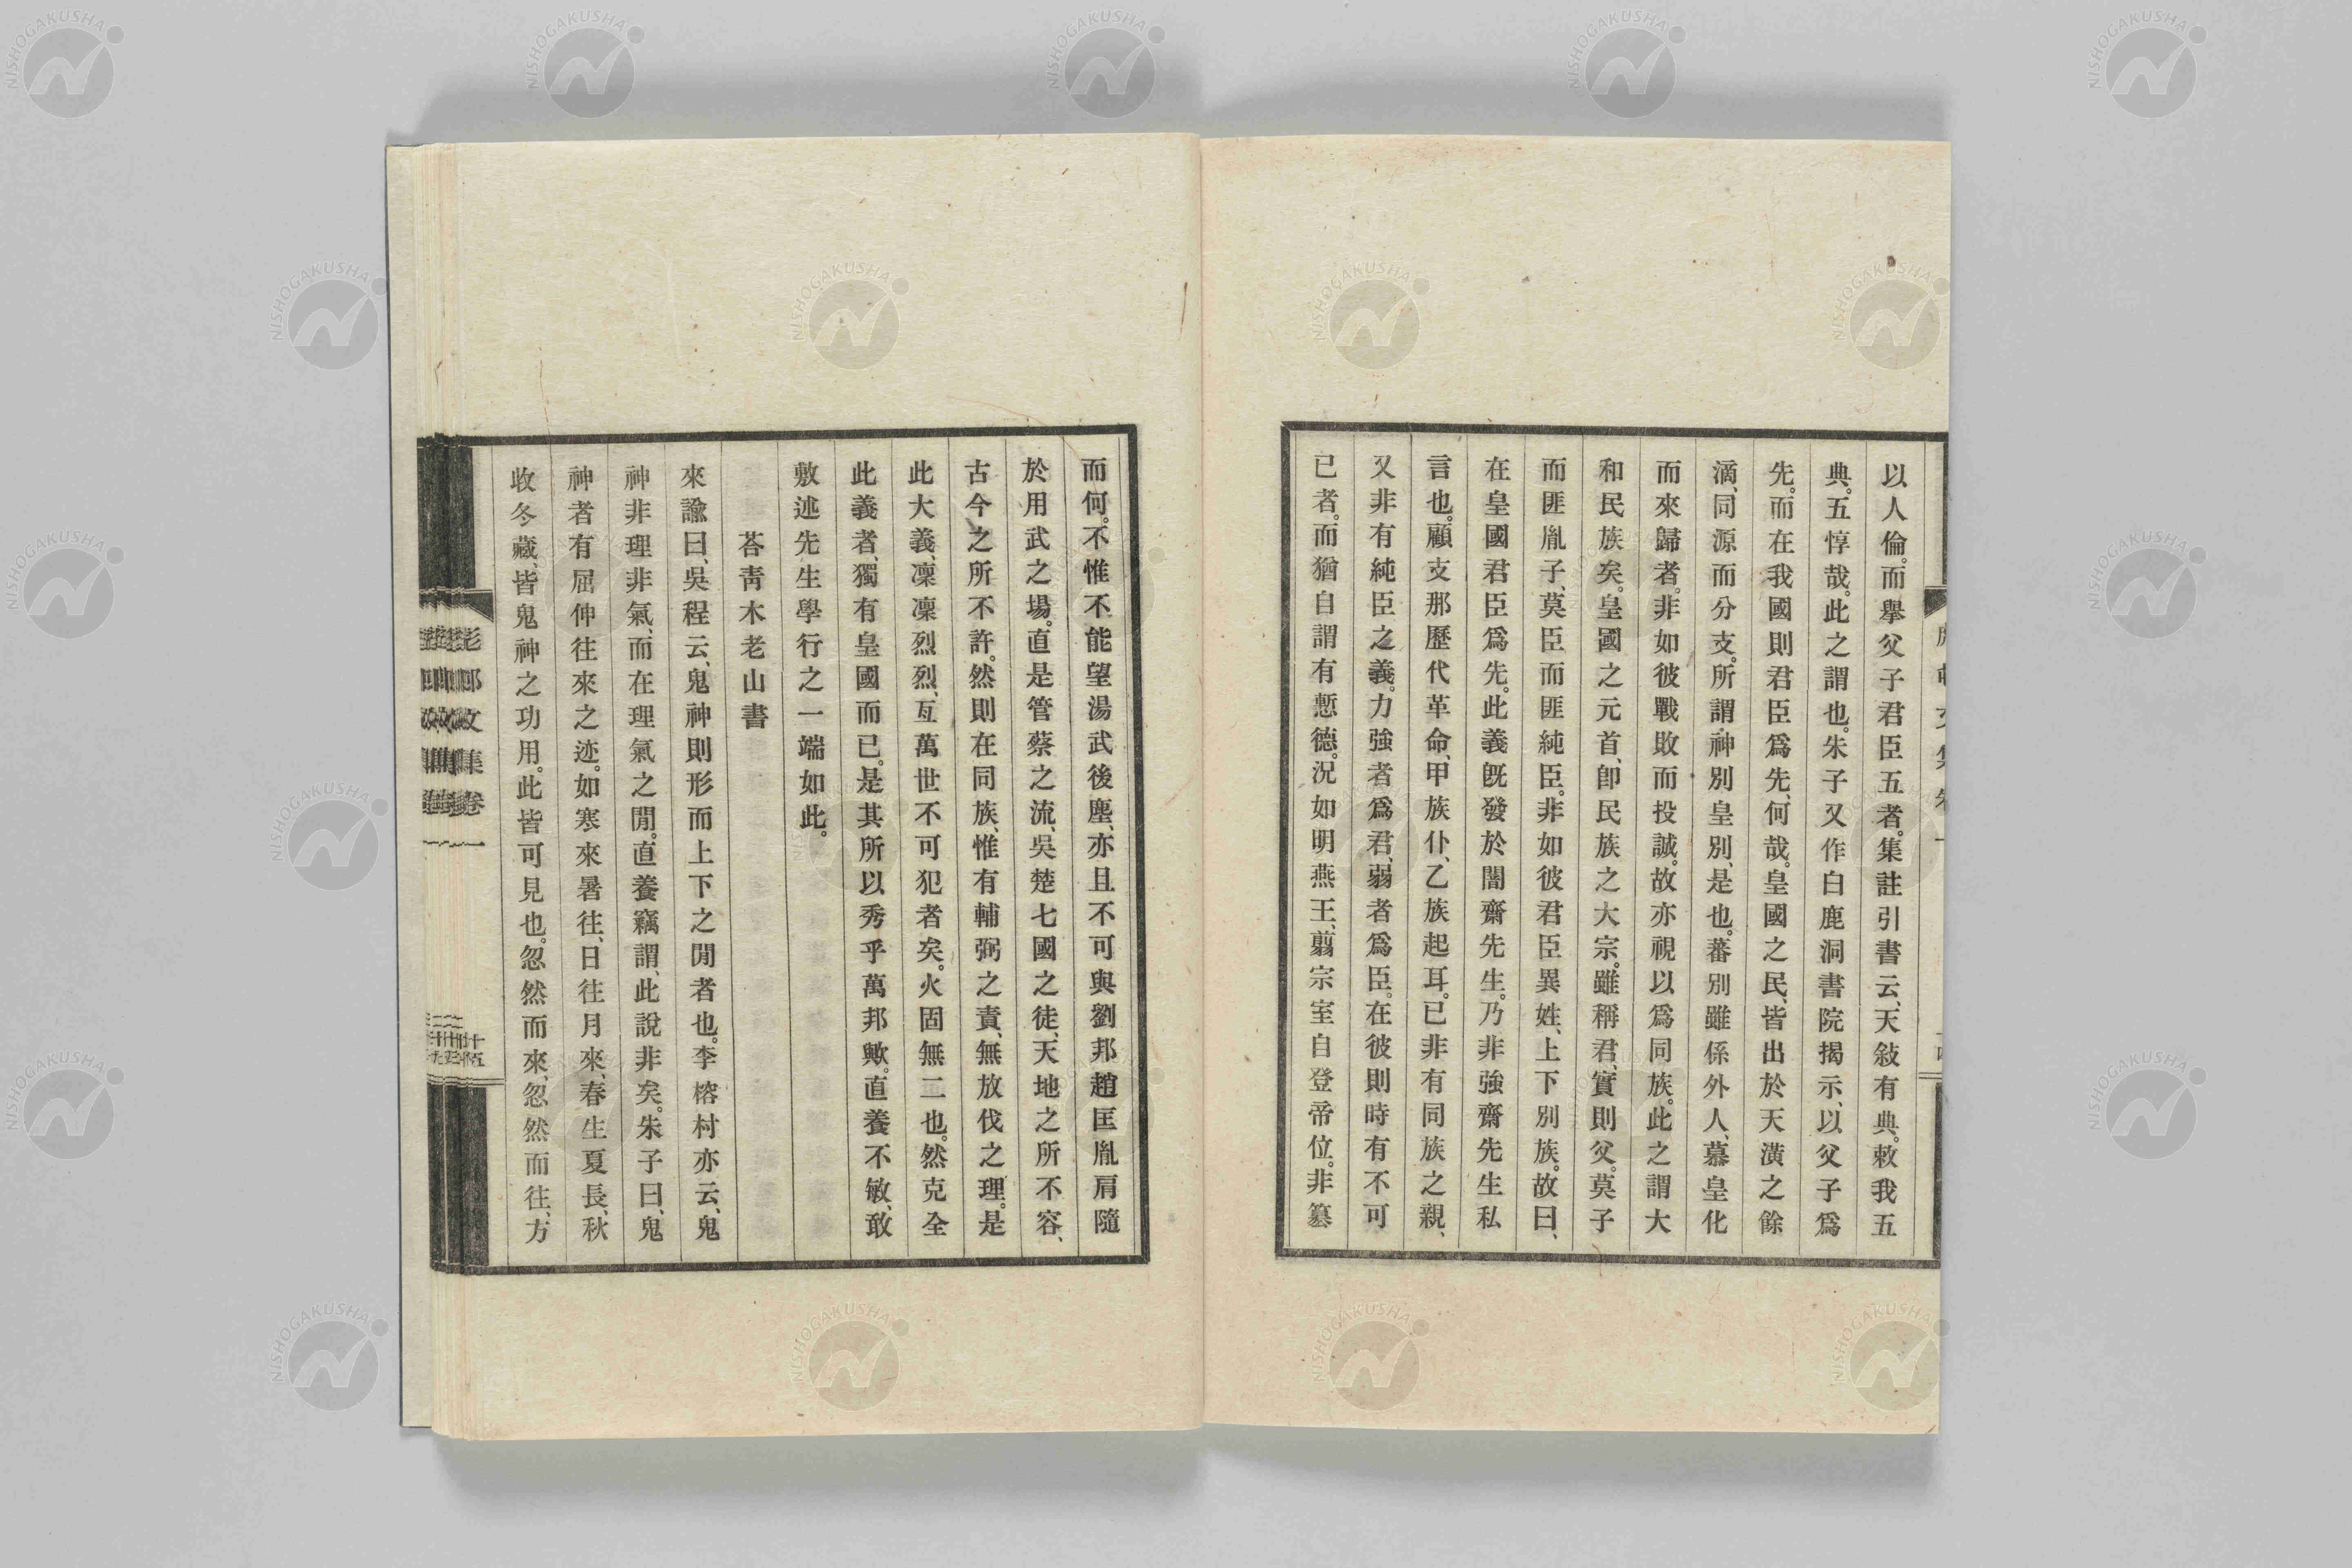 以人倫。而舉父子君臣五者。集註引書云、天敍有典。敕我五
典。五惇哉。此之謂也。朱子又作白鹿洞書院揭示、以父子爲
先。而在我國則君臣爲先、何哉。皇國之民、皆出於天潢之餘
滴、同源而分支。所謂神別皇別、是也。蕃別雖係外人、慕皇化
而來歸者。非如彼戰敗而投誠。故亦視以爲同族。此之謂大
和民族矣。皇國之元首、卽民族之大宗。雖稱君、實則父。莫子
而匪胤子、莫臣而匪純臣。非如彼君臣異姓、上下別族。故曰、
在皇國君臣爲先。此義旣發於闇齋先生。乃非強齋先生私
言也。顧支那歷代革命、甲族仆、乙族起耳。已非有同族之親、
又非有純臣之義。力強者爲君、弱者爲臣。在彼則時有不可
已者。而猶自謂有慙德。況如明燕王、翦宗室自登帝位。非簒
而何。不惟不能望湯武後塵、亦且不可與劉邦趙匡胤肩隨
於用武之場。直是管蔡之流、吳楚七國之徒、天地之所不容、
古今之所不許。然則在同族、惟有輔弼之責、無放伐之理。是
此大義、凜凜烈烈、亙萬世不可犯者矣。火固無二也。然克全
此義者、獨有皇國而已。是其所以秀乎萬邦歟。直養不敏、敢
敷述先生學行之一端如此。
荅靑木老山書
來諭曰、吳程云、鬼神則形而上下之閒者也。李榕村亦云、鬼
神非理非氣、而在理氣之閒。直養竊謂、此說非矣。朱子曰、鬼
神者有屈伸往來之迹。如寒來暑往、日往月來、春生夏長、秋
收冬藏、皆鬼神之功用。此皆可見也。忽然而來、忽然而往、方
文集卷一
十五
NISHOGAKUSHA